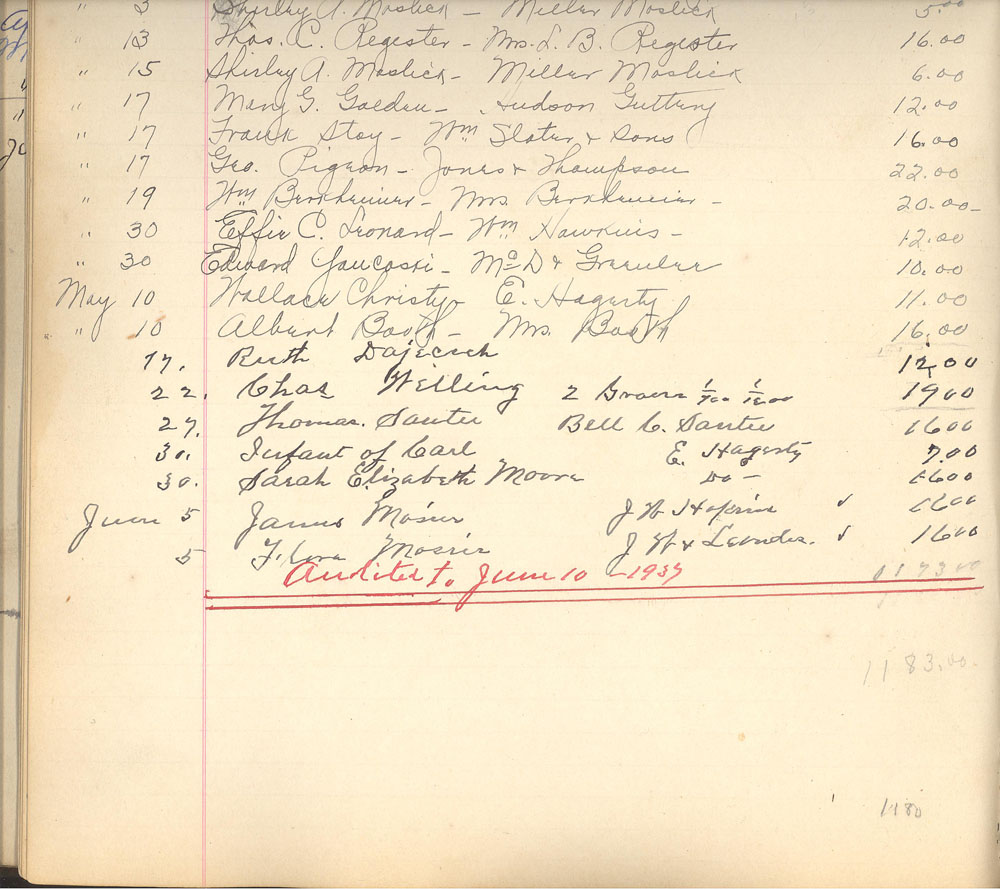 " 3 Shirley A. Moslick - Miller Moslick 5.00
" 13 Thos. C. Register - Mrs. L. B. Register 16.00
" 15 Shirley A. Moslick - Miller Moslick 6.00
" 17 Mary G. Golden - Hudson Guttery 12.00
" 17 Frank Stoy - Wm Slater & Sons 16.00
" 17 Geo. Pigeon - Jones & Thompson 22.00
" 19 Wm Berkheimer - Mrs. Berkheimer - 20.00-
" 30 Effie C. Leonard - Wm Hawkins - 12.00
" 30 Edward Yaucoski - McD & 10.00
May 10 Wallace Christy E. Hagerty 11.00
" 10 Albert Booth - Mrs. Booth 16.00
17. Ruth 12.00
22. Chas Welling 2 Graves 1900
27. Thomas. Santee Bell C. Santee 1600
30. Infant of Carl E. Hagerty 7.00
30. Sarah Elizabeth Moore Do - 1600
June 5 James Mosier J W Hopkins √ 1600
5 Mosier J W & √ 1600
Audited to June 10 - 1937 1173 00
1183.00.
1180